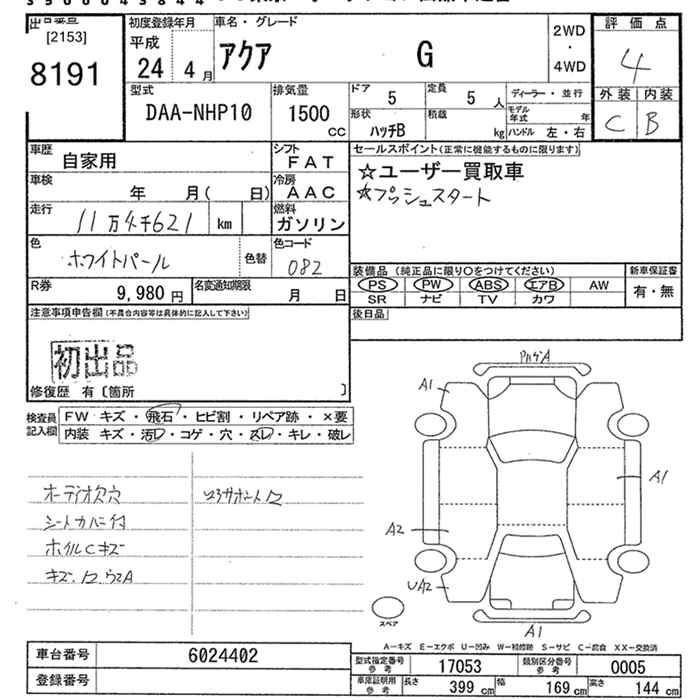 [2153]
8191
初度登録年月
平成
24年 4月
車名・グレード
アクア G
2WD
・
4WD
評価点
4
外装 内装
C B
型式
DAA-NHP10
排気量
1500
CC
ドア
5
定員
5人
形状
ハッチB
積載
kg
ディーラー・並行
モデル年式 年
ハンドル 左・右
車歴
自家用
シフト
FAT
車検
年 月( 日)
冷房
AAC
走行
11万4千621 km
燃料
ガソリン
色
ホワイトパール
色替
色コード
082
R券
9,980円
名変通知期限
月 日
セールスポイント(正常に機能するものに限ります)
☆ユーザー買取車
☆プッシュスタート
装備品(純正品に限り○をつけてください)
新車保証書
PS PW ABS エアB AW
有・無
SR ナビ TV カワ
後日品
注意事項申告欄(不具合内容等は具体的に記入して下さい)
初出品
修復歴 有〔箇所 〕
検査員記入欄
FW キズ・飛石・ヒビ割・リペア跡・×要
内装 キズ・汚レ・コゲ・穴・スレ・キレ・破レ
オーディオ欠穴
シートカバー付
ホイルCキズ
A1
A1
A2
UA2
A1
スペア
A-キズ E-エクボ U-凹み W-補修跡 S-サビ C-腐食 XX-交換済
車台番号
6024402
登録番号
型式指定番号 参考
17053
類別区分番号 参考
0005
車庫証明用 参考
長さ 399cm
幅 169cm
高さ 144cm